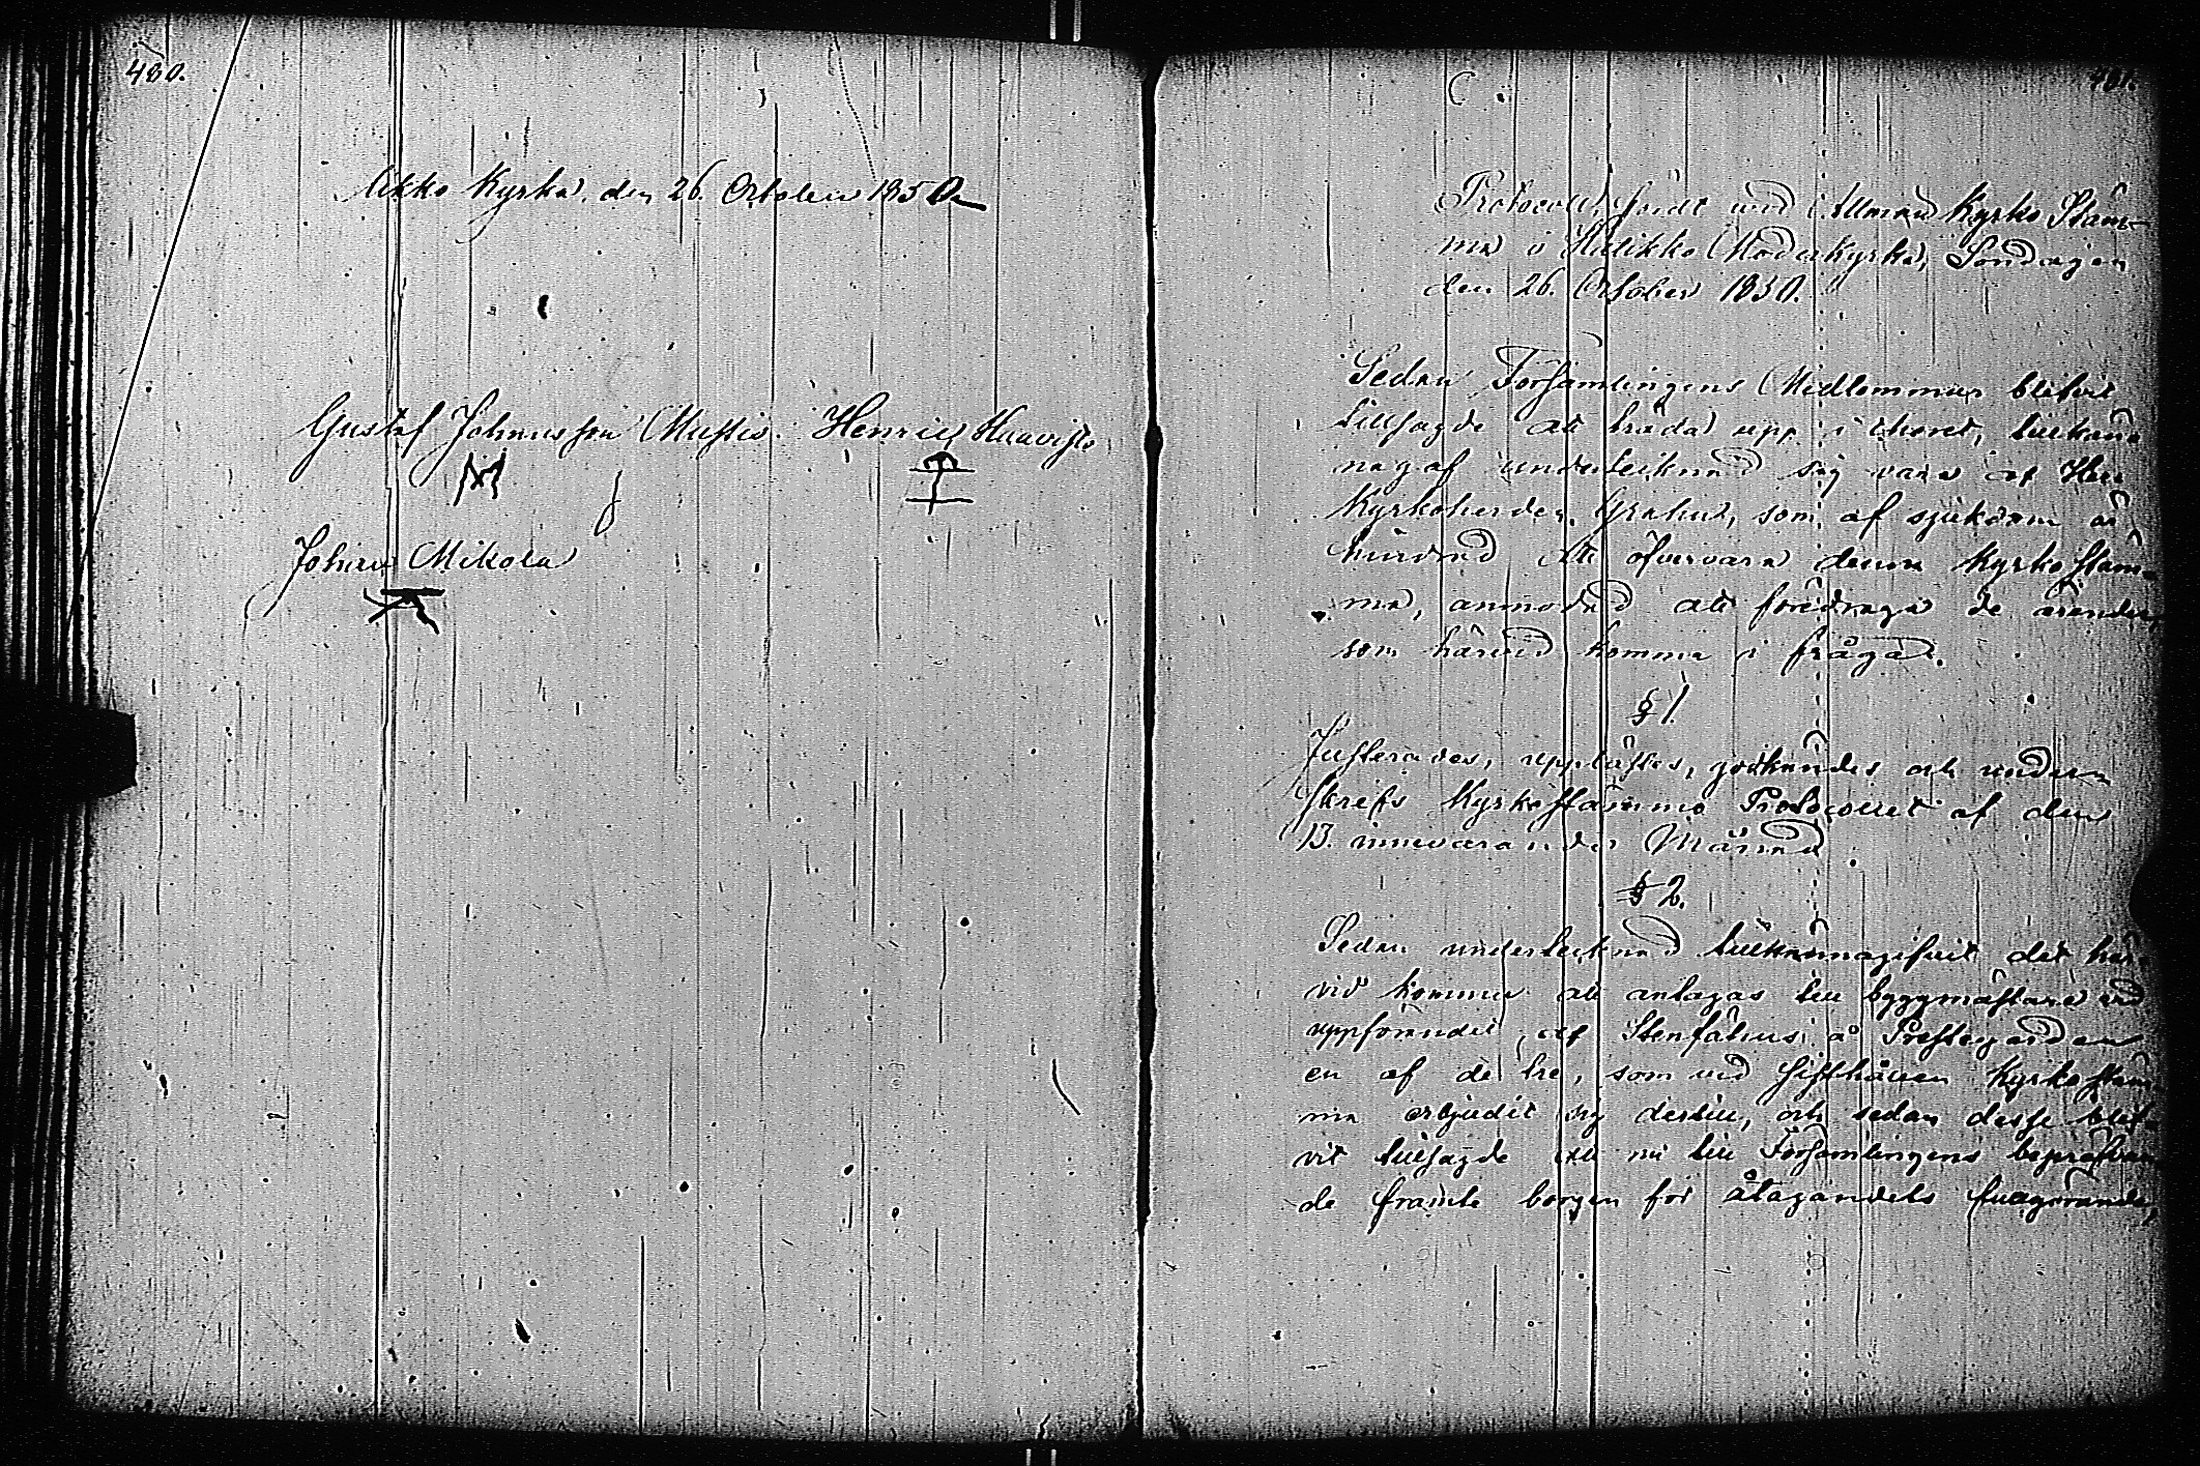 480.
likko Kyrka, den 26. October 1850.
Gustaf Johansson Mussis. Henric Haavisto
Johan Mikola
481.
Protocoll, fördt vid Allmän Kyrko Stäm-
ma i Halikko Moderkyrka, Söndagen
den 26. October 1850.
Sedan Församlingens Medlemmar blifvit
tillsagde att träda upp i choret, tillkänna
nagaf undertecknad sig vara af Herr
Kyrkoherden, som af sjukdom är
hindrad att öfvervara denna Kyrkostäm-
ma, anmodad att föredraga de ärender,
som härvid komma i fråga.
§ 1.
Justerades, upplästes, godkändes och under-
skrefs Kyrkostämmo Protocollet af den
13. innevarande Månad.
§ 2.
Sedan undertecknad tillkännagifvit det här-
vid kommer att antagas till byggmästare vid
uppförandet af Stenfähus å Prestegården
en af de tre, som vid sisthållen Kyrkostäm-
ma erbjudit sig dertill, och sedan desse blif-
vit tillsagde att nu till Församlingens bepröfvan-
de framte borgen för åtagandets fullgörande,